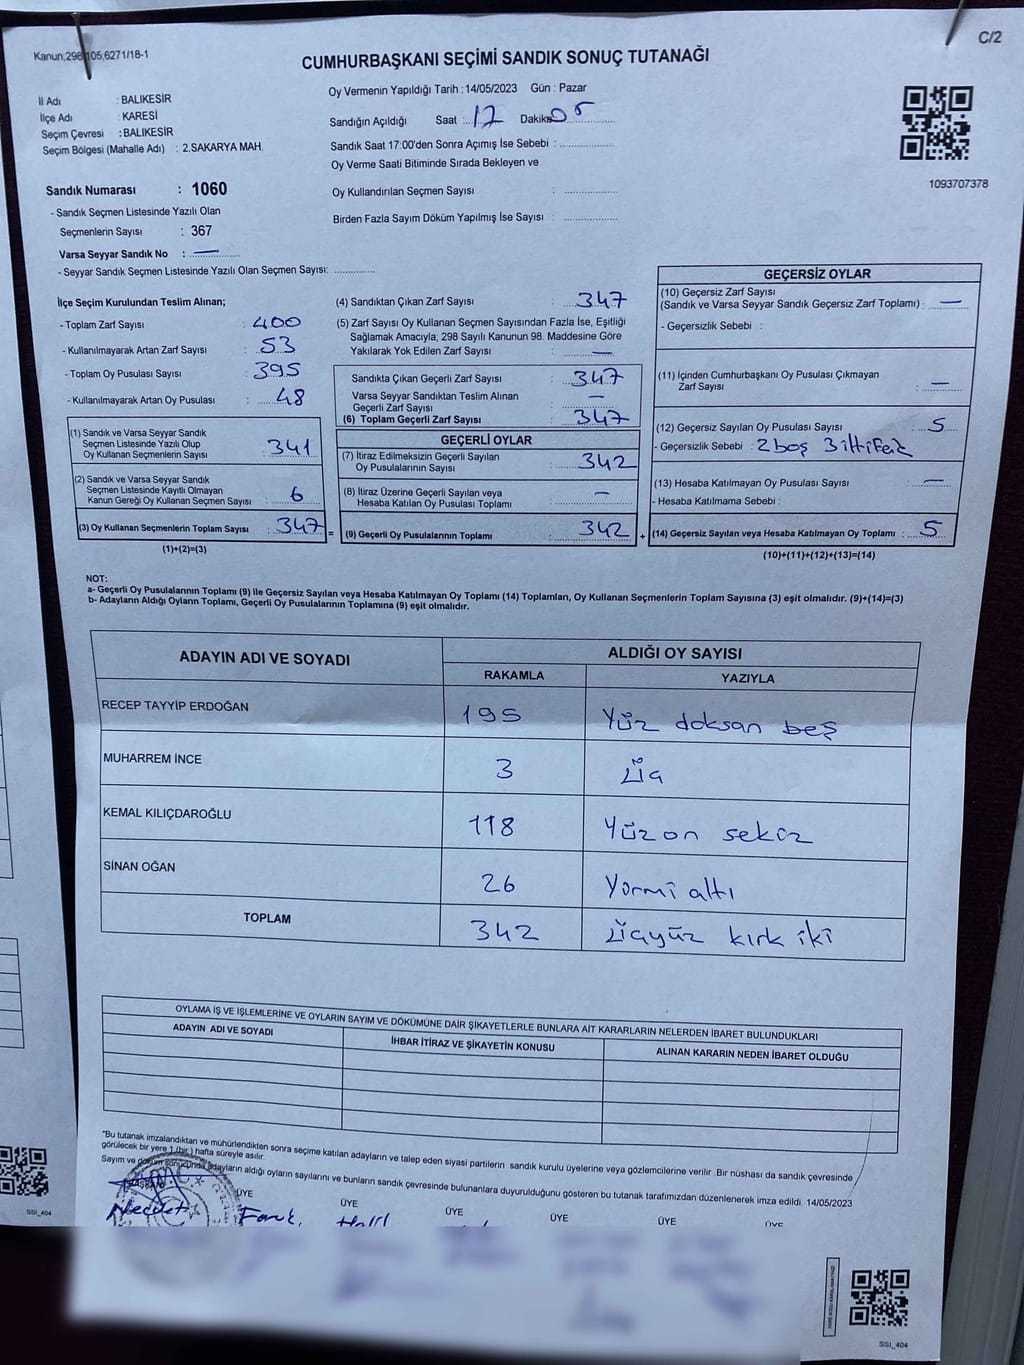 C/2
Kanun;298,105,6271/18-1
CUMHURBAŞKANI SEÇİMİ SANDIK SONUÇ TUTANAĞI
İl Adı : BALIKESİR
İlçe Adı : KARESİ
Seçim Çevresi : BALIKESİR
Seçim Bölgesi (Mahalle Adı) : 2.SAKARYA MAH.
Oy Vermenin Yapıldığı Tarih : 14/05/2023 Gün : Pazar
Sandığın Açıldığı Saat : 17 Dakika 05
Sandık Saat 17:00'den Sonra Açımış İse Sebebi :
Oy Verme Saati Bitiminde Sırada Bekleyen ve
Oy Kullandırılan Seçmen Sayısı :
Birden Fazla Sayım Döküm Yapılmış İse Sayısı :
1093707378
Sandık Numarası : 1060
- Sandık Seçmen Listesinde Yazılı Olan
Seçmenlerin Sayısı : 367
Varsa Seyyar Sandık No : —
- Seyyar Sandık Seçmen Listesinde Yazılı Olan Seçmen Sayısı:
İlçe Seçim Kurulundan Teslim Alınan;
- Toplam Zarf Sayısı : 400
- Kullanılmayarak Artan Zarf Sayısı : 53
- Toplam Oy Pusulası Sayısı : 395
- Kullanılmayarak Artan Oy Pusulası : 48
(1) Sandık ve Varsa Seyyar Sandık
Seçmen Listesinde Yazılı Olup
Oy Kullanan Seçmenlerin Sayısı : 341
(2) Sandık ve Varsa Seyyar Sandık
Seçmen Listesinde Kayıtlı Olmayan
Kanun Gereği Oy Kullanan Seçmen Sayısı : 6
(3) Oy Kullanan Seçmenlerin Toplam Sayısı : 347
(1)+(2)=(3)
(4) Sandıktan Çıkan Zarf Sayısı : 347
(5) Zarf Sayısı Oy Kullanan Seçmen Sayısından Fazla İse, Eşitliği
Sağlamak Amacıyla; 298 Sayılı Kanunun 98. Maddesine Göre
Yakılarak Yok Edilen Zarf Sayısı : —
Sandıkta Çıkan Geçerli Zarf Sayısı : 347
Varsa Seyyar Sandıktan Teslim Alınan
Geçerli Zarf Sayısı : —
(6) Toplam Geçerli Zarf Sayısı : 347
GEÇERLİ OYLAR
(7) İtiraz Edilmeksizin Geçerli Sayılan
Oy Pusulalarının Sayısı : 342
(8) İtiraz Üzerine Geçerli Sayılan veya
Hesaba Katılan Oy Pusulası Toplamı : —
= (9) Geçerli Oy Pusulalarının Toplamı : 342 +
GEÇERSİZ OYLAR
(10) Geçersiz Zarf Sayısı
(Sandık ve Varsa Seyyar Sandık Geçersiz Zarf Toplamı) : —
- Geçersizlik Sebebi :
(11) İçinden Cumhurbaşkanı Oy Pusulası Çıkmayan
Zarf Sayısı : —
(12) Geçersiz Sayılan Oy Pusulası Sayısı : 5
- Geçersizlik Sebebi : 2 boş 3 ittifak
(13) Hesaba Katılmayan Oy Pusulası Sayısı : —
- Hesaba Katılmama Sebebi :
(14) Geçersiz Sayılan veya Hesaba Katılmayan Oy Toplamı : 5
(10)+(11)+(12)+(13)=(14)
NOT:
a- Geçerli Oy Pusulalarının Toplamı (9) ile Geçersiz Sayılan veya Hesaba Katılmayan Oy Toplamı (14) Toplamları, Oy Kullanan Seçmenlerin Toplam Sayısına (3) eşit olmalıdır. (9)+(14)=(3)
b- Adayların Aldığı Oyların Toplamı, Geçerli Oy Pusulalarının Toplamına (9) eşit olmalıdır.
ADAYIN ADI VE SOYADI ALDIĞI OY SAYISI
RAKAMLA YAZIYLA
RECEP TAYYİP ERDOĞAN 195 Yüz doksan beş
MUHARREM İNCE 3 üç
KEMAL KILIÇDAROĞLU 118 Yüz on sekiz
SİNAN OĞAN 26 Yirmi altı
TOPLAM 342 üçyüz kırk iki
OYLAMA İŞ VE İŞLEMLERİNE VE OYLARIN SAYIM VE DÖKÜMÜNE DAİR ŞİKAYETLERLE BUNLARA AİT KARARLARIN NELERDEN İBARET BULUNDUKLARI
ADAYIN ADI VE SOYADI İHBAR İTİRAZ VE ŞİKAYETİN KONUSU ALINAN KARARIN NEDEN İBARET OLDUĞU
*Bu tutanak imzalandıktan ve mühürlendikten sonra seçime katılan adayların ve talep eden siyasi partilerin sandık kurulu üyelerine veya gözlemcilerine verilir. Bir nüshası da sandık çevresinde
görülecek bir yere 1 (bir) hafta süreyle asılır.
Sayım ve döküm sonucunda adayların aldığı oyların sayılarını ve bunların sandık çevresinde bulunanlara duyurulduğunu gösteren bu tutanak tarafımızdan düzenlenerek imza edildi. 14/05/2023
ÜYE ÜYE ÜYE ÜYE ÜYE ÜYE
Necdet Faruk Halil
SSI_404
SSI_404